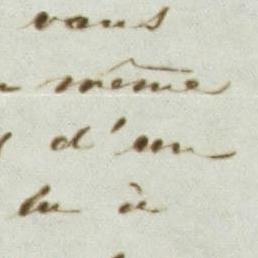 vous
même
d'un
lu à